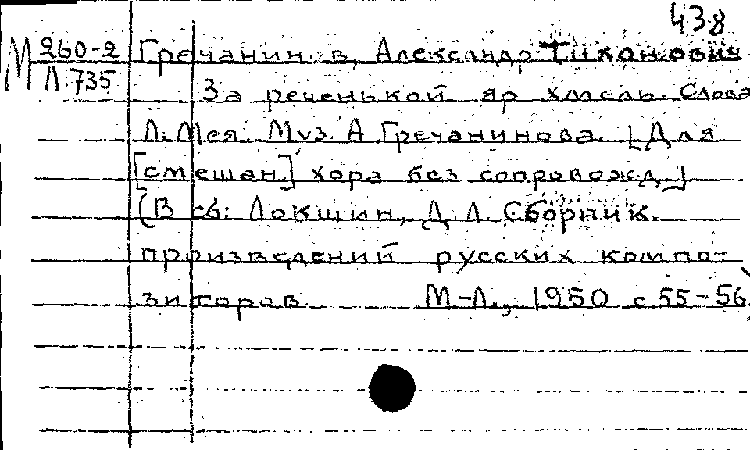 438
М 260-2 Гречанинов, Александр Тихонович
Л 735 За реченькой яр хмель. Слова
Л. Мея. Муз. А. Гречанинова. [Для
[смешан.] хора без сопровожд.]
(В сб: Локшин, Д. Л. Сборник.
произведений русских компо-
зиторов. М-Л., 1950 с 55-56)